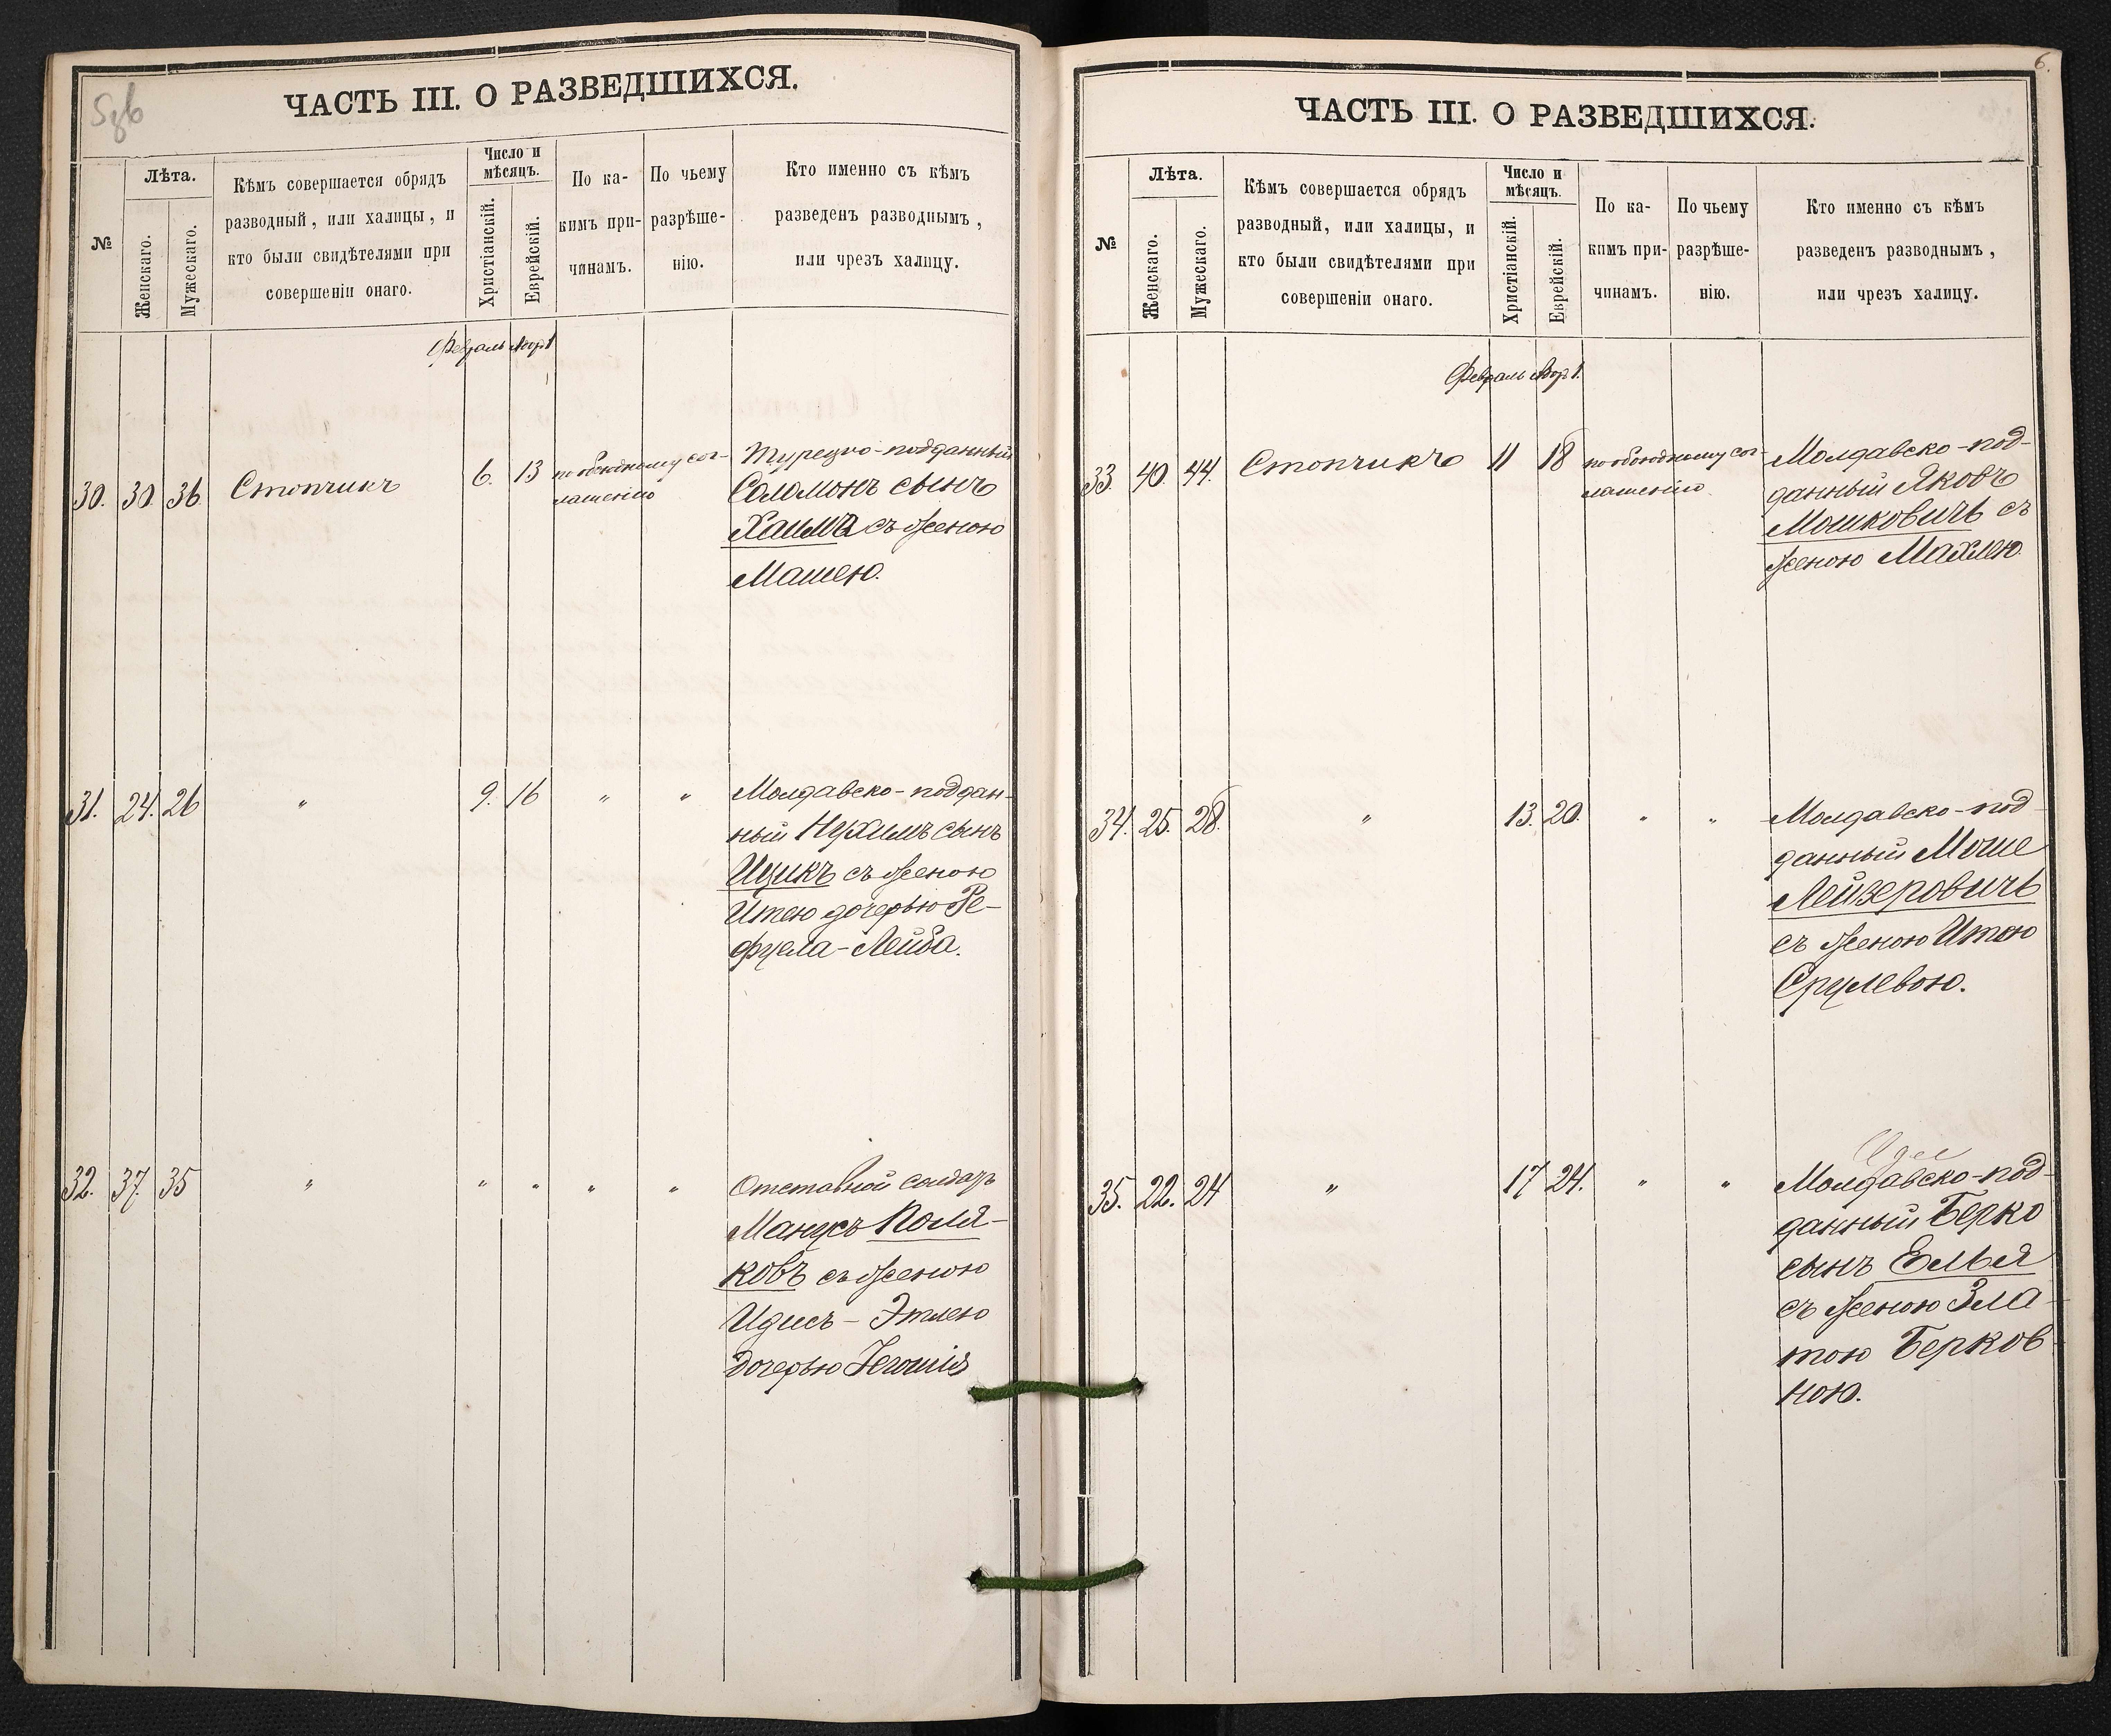 ЧАСТЬ III. О РАЗВЕДШИХСЯ.
№
Лѣта.
Женскаго.
Мужескаго.
Кѣмъ совершается обрядъ
разводный, или халицы, и
кто были свидѣтелями при
совершеніи онаго.
Число и
мѣсяцъ.
Христіанскій.
Еврейскій.
По ка-
кимъ при-
чинамъ.
По чьему
разрѣше-
нію.
Кто именно съ кѣмъ
разведенъ разводнымъ,
или чрезъ халицу.
Февраль Адаръ 1
30. 30 36. Стопчикъ 6. 13 по обоюдному сог-
лашенію
Турецко-подданный
Соломонъ сынъ
Хаима съ женою
Машею.
31. 24. 26 " 9. 16 " "
Молдавско-поддан-
ный Нухимъ сынъ
Ицикъ съ женою
Итею дочерью Ре-
фуела-Лейба.
32. 37. 35 " " " " "
Отставной солдатъ
Манусъ Поля-
ковъ съ женою
Идисъ-Этлею
дочерью
6.
ЧАСТЬ III. О РАЗВЕДШИХСЯ.
№
Лѣта.
Женскаго.
Мужескаго.
Кѣмъ совершается обрядъ
разводный, или халицы, и
кто были свидѣтелями при
совершеніи онаго.
Число и
мѣсяцъ.
Христіанскій.
Еврейскій.
По ка-
кимъ при-
чинамъ.
По чьему
разрѣше-
нію.
Кто именно съ кѣмъ
разведенъ разводнымъ,
или чрезъ халицу.
Февраль Адаръ 1.
33. 40. 44. Стопчикъ 11 18 по обоюдному сог-
лашенію
Молдавско-под-
данный Яковъ
Мошковичъ съ
женою Махлею
34. 25. 28. " 13. 20. " "
Молдавско-под-
данный Моше
Лейзеровичъ
съ женою Итою
Срулевою.
35. 22. 24 " 17 24. " "
Молдавско-под-
данный Берко
сынъ Елья
съ женою Зла-
тою Берков-
ною.